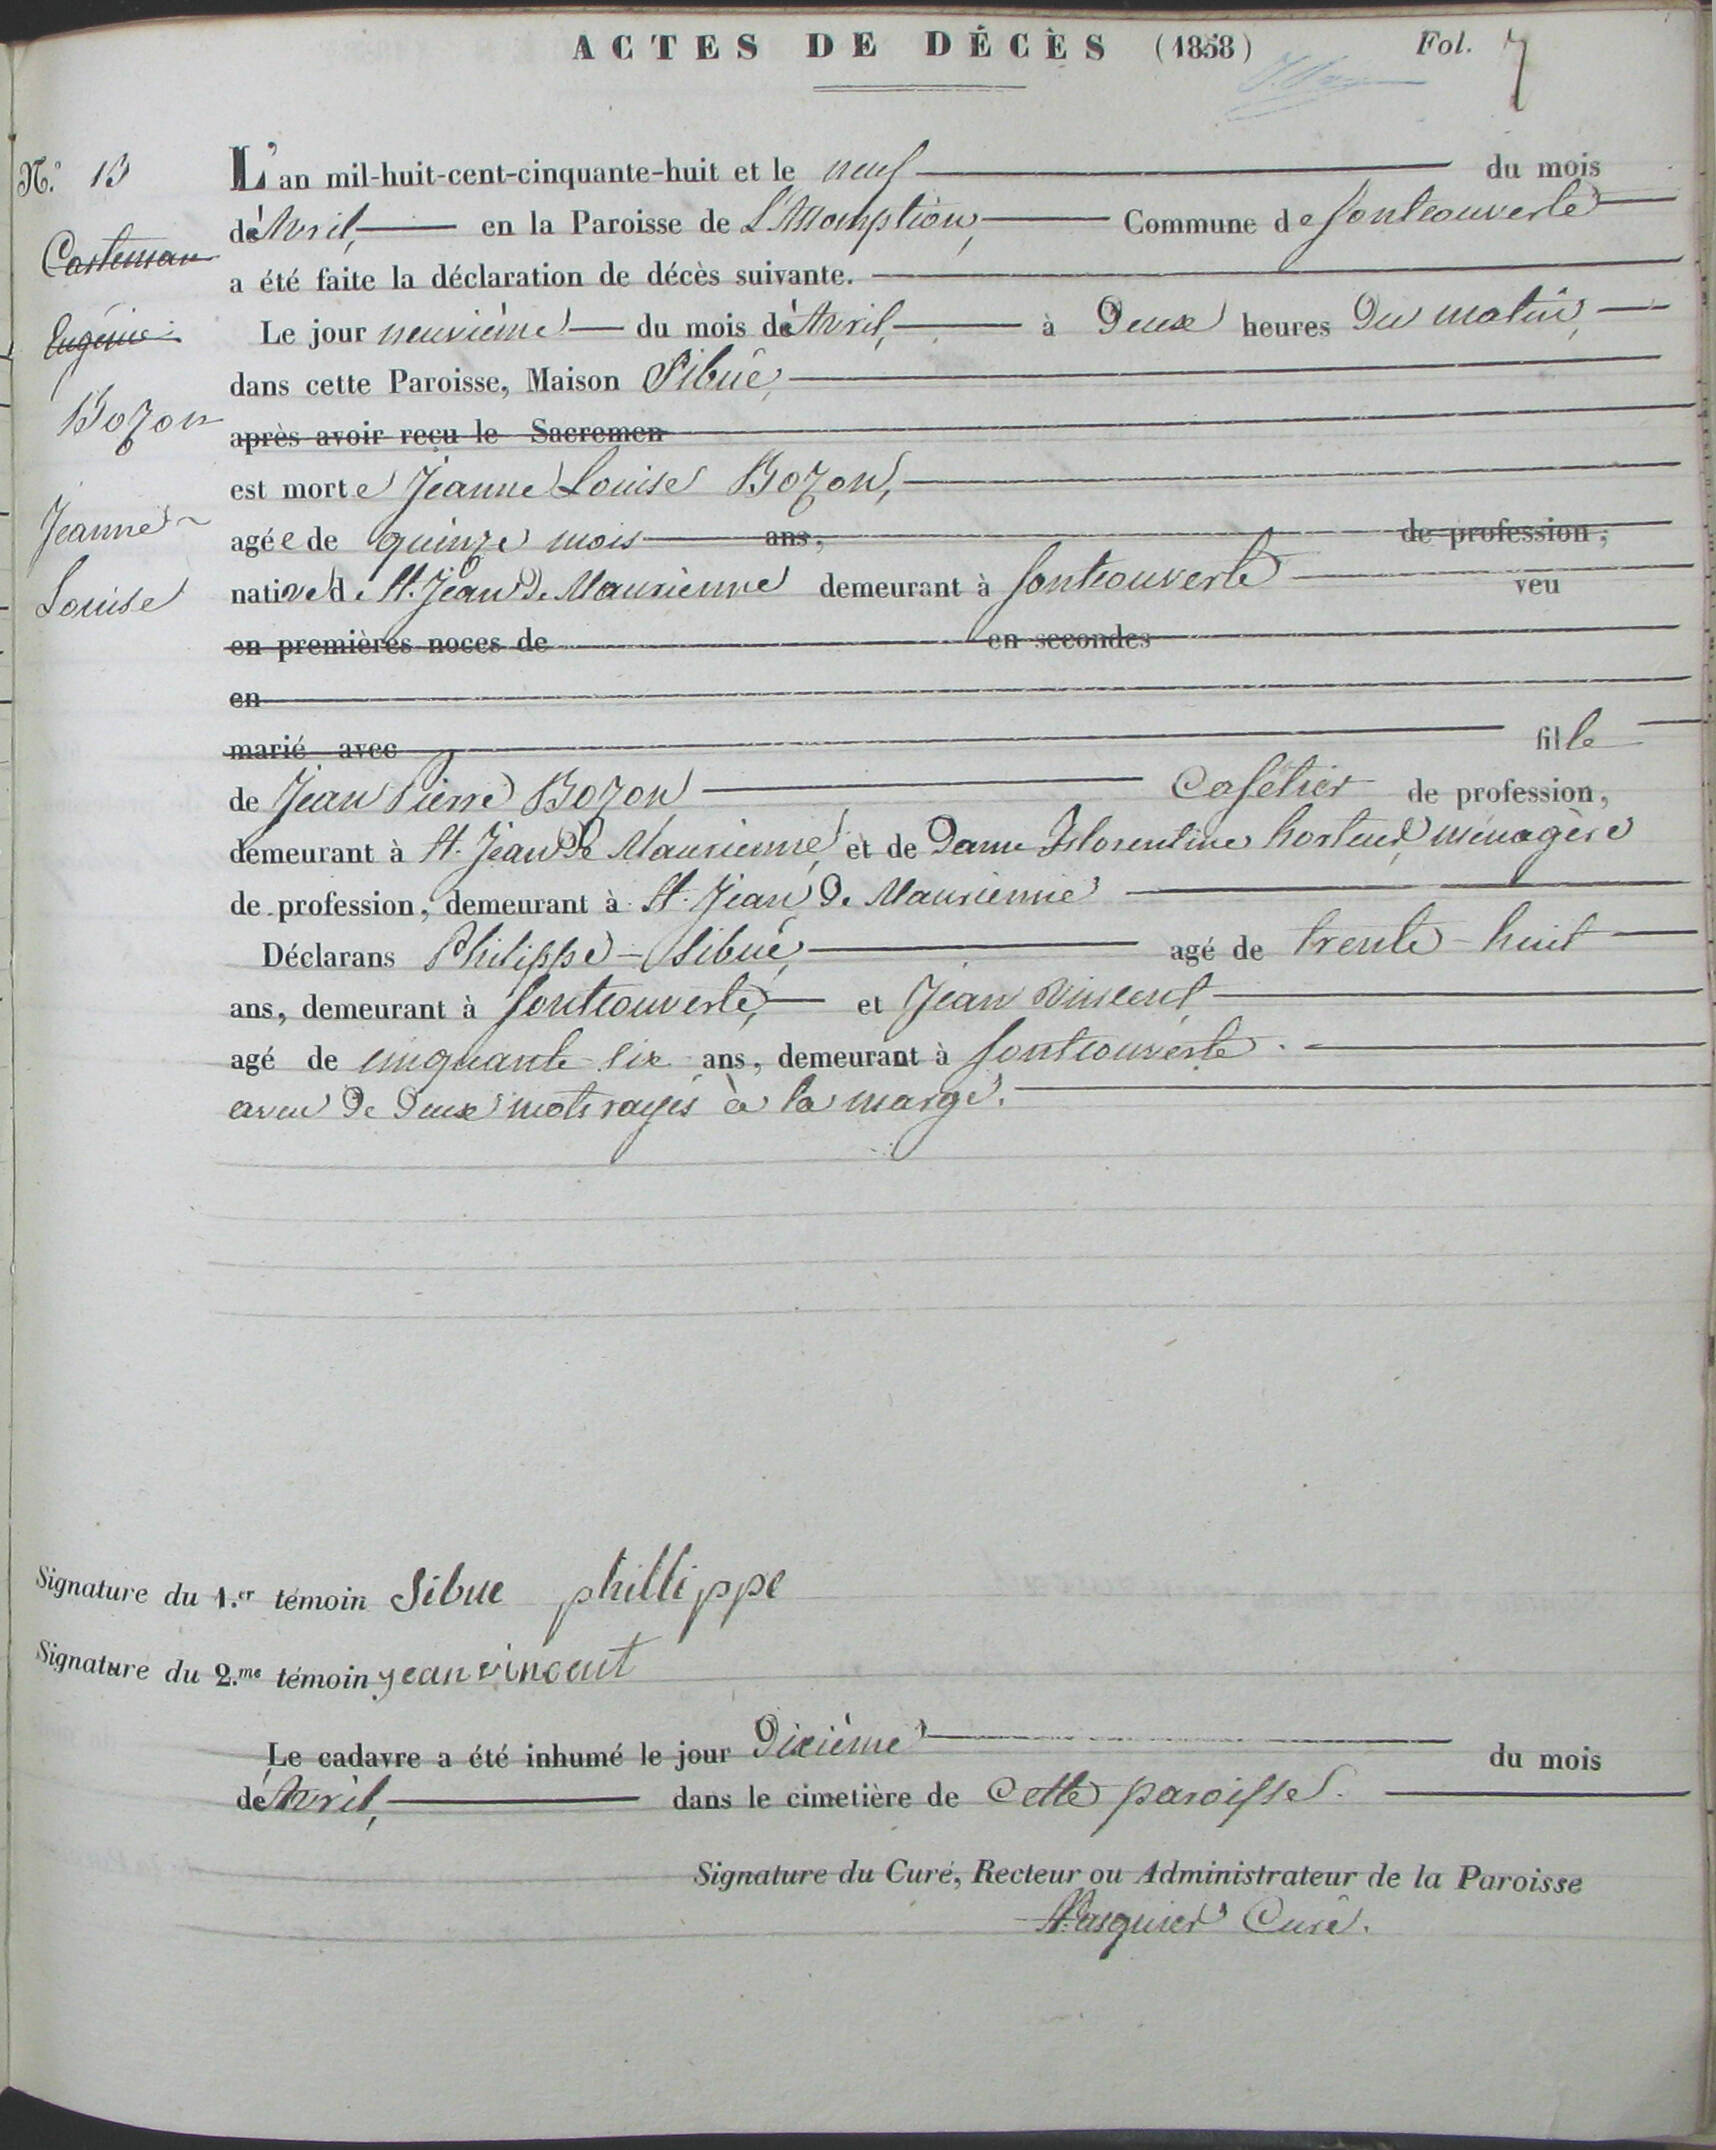 ACTES DE DÉCÈS (1858) Fol. 7
N.° 13
Casteman
Eugénie
Bozon
Jeanne
Louise
L'an mil-huit-cent-cinquante-huit et le neuf du mois
de Avril, en la Paroisse de L'Assomption, Commune de fontcouverte
a été faite la déclaration de décès suivante.
Le jour neuvième du mois de Avril, à Deux heures Du matin,
dans cette Paroisse, Maison Sibué,
après avoir reçu le Sacremen
est morte Jeanne Louise Bozon,
agée de quinze mois ans, de profession,
native de St. Jean De Maurienne demeurant à fontcouverte veu
en premières noces de en secondes
en
marié avec fille
de Jean Pierre Bozon Cafétier de profession,
demeurant à St. Jean De Maurienne, et de Dame Florentine ménagère
de profession, demeurant à St. Jean De Maurienne
Déclarans Philippe Sibué, agé de trente-huit
ans, demeurant à fontcouverte, et Jean Vincent,
agé de cinquante six ans, demeurant à fontcouverte.
aveu De Deux mots rayés à la marge.
Signature du 1.er témoin Sibue phillippe
Signature du 2.me témoin jean vincent
Le cadavre a été inhumé le jour Dixième du mois
de Avril, dans le cimetière de Cette paroisse.
Signature du Curé, Recteur ou Administrateur de la Paroisse
Pasquier Curé.